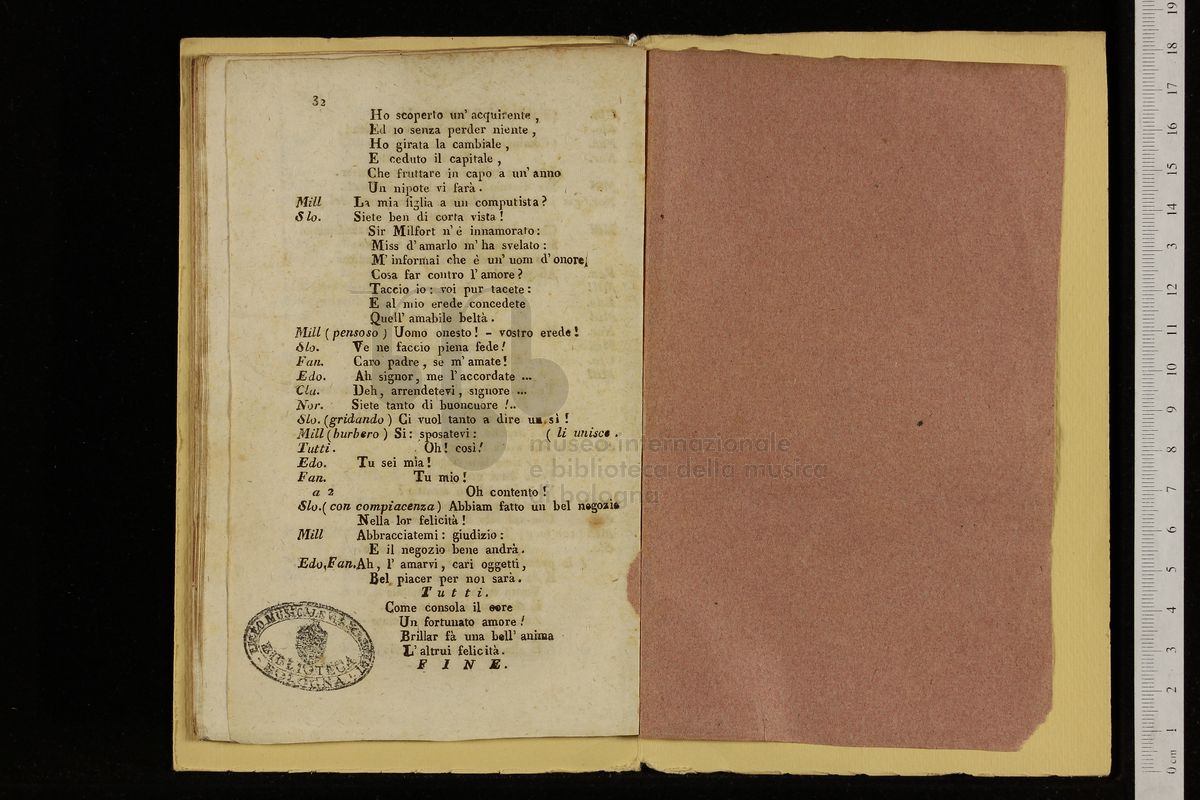 32
Ho scoperto un' acquirente ,
Ed io senza perder niente ,
Ho girata la cambiale ,
E ceduto il capitale ,
Che fruttare in capo a un' anno
Un nipote vi farà .
Mill La mia figlia a un computista ?
Slo. Siete ben di corta vista !
Sir Milfort n' é innamorato :
Miss d' amarlo m' ha svelato :
M' informai che è un' uom d' onore,
Cosa far contro l' amore ?
Taccio io : voi pur tacete :
E al mio erede concedete
Quell' amabile beltà .
Mill ( pensoso ) Uomo onesto ! - vostro erede !
Slo. Ve ne faccio piena fede !
Fan. Caro padre , se m' amate !
Edo. Ah signor, me l' accordate ...
Cla. Deh, arrendetevi , signore ...
Nor. Siete tanto di buoncuore !..
Slo. (gridando ) Ci vuol tanto a dire un sì !
Mill (burbero ) Si : sposatevi : ( li unisce .
Tutti . Oh! così !
Edo. Tu sei mia !
Fan. Tu mio !
a 2 Oh contento !
Slo.( con compiacenza ) Abbiam fatto un bel negozio
Nella lor felicità !
Mill Abbracciatemi : giudizio :
E il negozio bene andrà .
Edo,Fan.Ah , l' amarvi , cari oggetti ,
Bel piacer per noi sarà .
Tutti.
Come consola il core
Un fortunato amore !
Brillar fà una bell' anima
L' altrui felicità .
FINE.
MUSICALE
BIBLIOTECA
BOLOGNA
museo internazionale
e biblioteca della musica
di bologna
0 cm 1 2 3 4 5 6 7 8 9 10 11 12 13 14 15 16 17 18 19